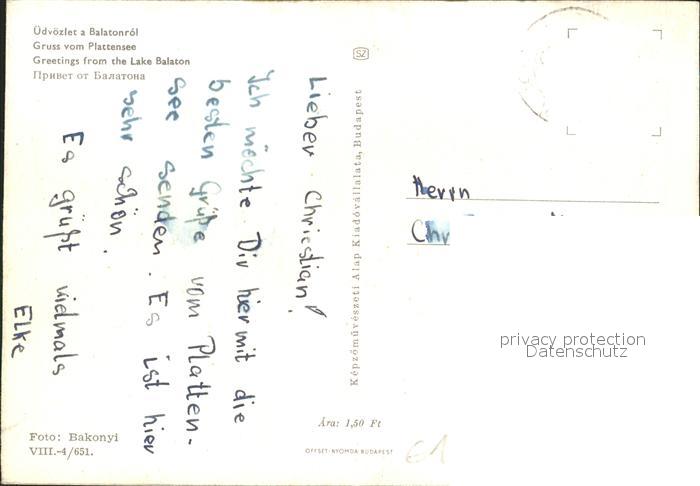 Üdvözlet a Balatonról
Gruss vom Plattensee
Greetings from the Lake Balaton
Привет от Балатона
Lieber Christian!
Ich möchte Dir hiermit die
besten Grüße vom Platten-
see senden. Es ist hier
sehr schön.
Es grüßt vidmals
Elke
Foto: Bakonyi
VIII.-4/651.
SZ
Képzőművészeti Alap Kiadóvállalata, Budapest
Ára: 1,50 Ft
OFFSET-NYOMDA BUDAPEST
Herrn
Chr
privacy protection
Datenschutz
€1